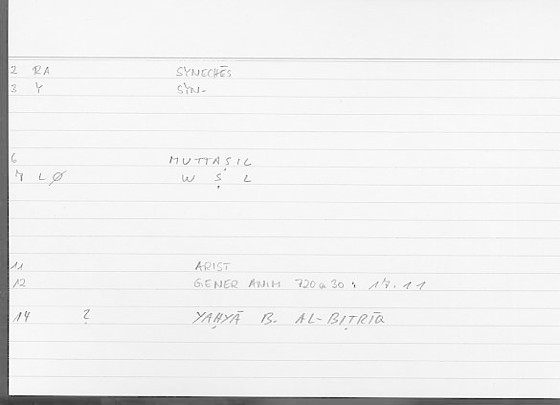 2 RA SYNECHĒS
3 Y SYN-
6 MUTTAṢIL
7 LØ W Ṣ L
11 ARIST
12 GENER ANIM 720a30 : 17.11
14 ? YAḤYĀ B. AL-BIṬRĪQ